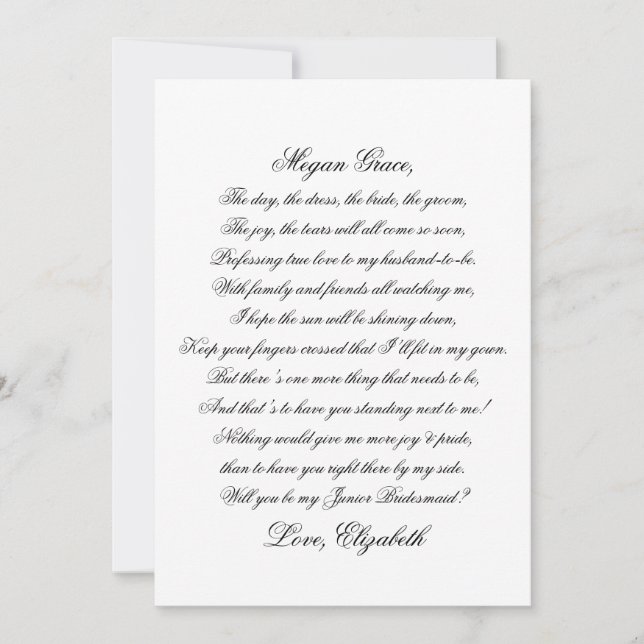 Megan Grace,
The day, the dress, the bride, the groom,
The joy, the tears will all come so soon,
Professing true love to my husband-to-be.
With family and friends all watching me,
I hope the sun will be shining down,
Keep your fingers crossed that I'll fit in my gown.
But there's one more thing that needs to be,
And that's to have you standing next to me!
Nothing would give me more joy & pride,
than to have you right there by my side.
Will you be my Junior Bridesmaid?
Love, Elizabeth